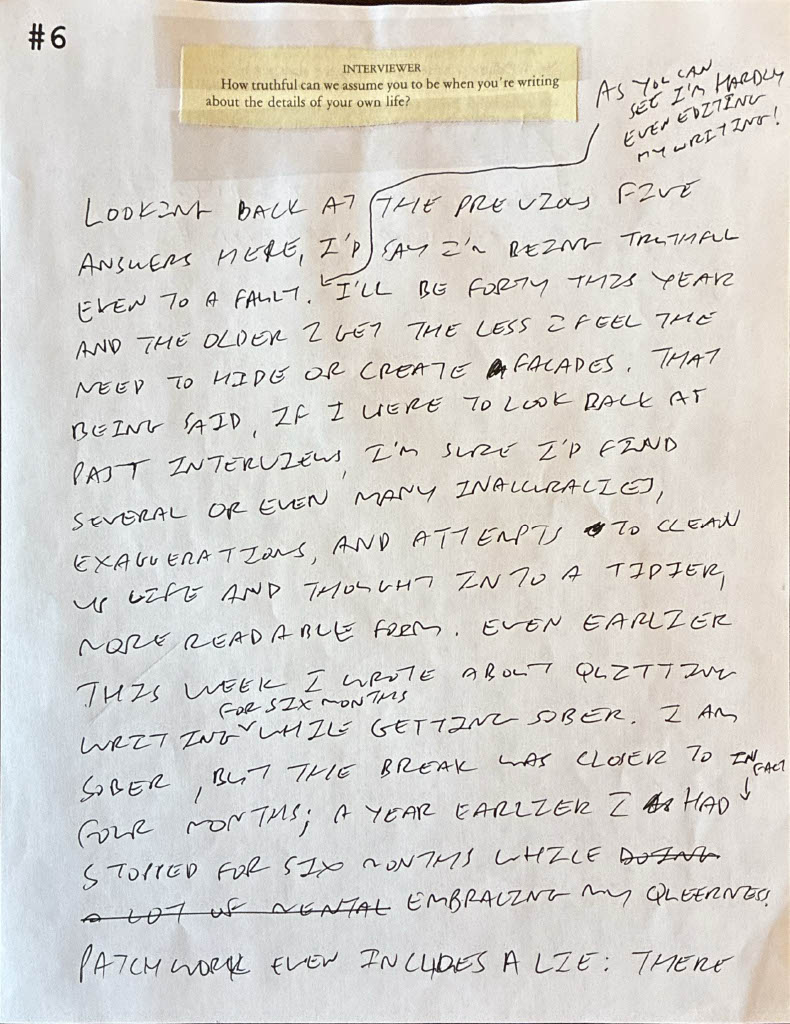 #6
INTERVIEWER
How truthful can we assume you to be when you're writing
about the details of your own life?
AS YOU CAN
SEE I'M HARDLY
EVEN EDITING
MY WRITING!
LOOKING BACK AT THE PREVIOUS FIVE
ANSWERS HERE, I'D SAY I'M BEING TRUTHFUL
EVEN TO A FAULT. I'LL BE FORTY THIS YEAR
AND THE OLDER I GET THE LESS I FEEL THE
NEED TO HIDE OR CREATE FACADES. THAT
BEING SAID, IF I WERE TO LOOK BACK AT
PAST INTERVIEWS, I'M SURE I'D FIND
SEVERAL OR EVEN MANY INACCURACIES,
EXAGGERATIONS, AND ATTEMPTS TO CLEAN
UP LIFE AND THOUGHT INTO A TIDIER,
MORE READABLE FORM. EVEN EARLIER
THIS WEEK I WROTE ABOUT QUITTING
FOR SIX MONTHS
WRITING WHILE GETTING SOBER. I AM
SOBER, BUT THE BREAK WAS CLOSER TO
IN FACT
FOUR MONTHS; A YEAR EARLIER I HAD
STOPPED FOR SIX MONTHS WHILE DOING
A LOT OF MENTAL EMBRACING MY QUEERNESS.
PATCHWORK EVEN INCLUDES A LIE: THERE